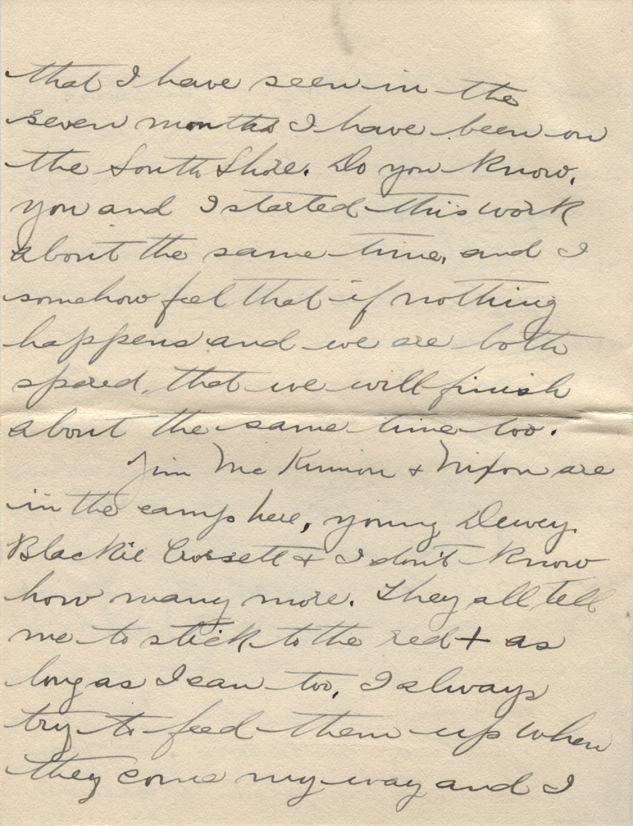 that I have seen in the
seven months I have been on
the South Shore. Do you know,
you and I started this work
about the same time, and I
somehow feel that if nothing
happens and we are both
spared, that we will finish
about the same time too.
Jim McKinnon & Nixon are
in the camp here, young Dewey
Blackie Crossett & I don't know
how many more. They all tell
me to stick to the red + as
long as I can too, I always
try to feed them up when
they come my way and I